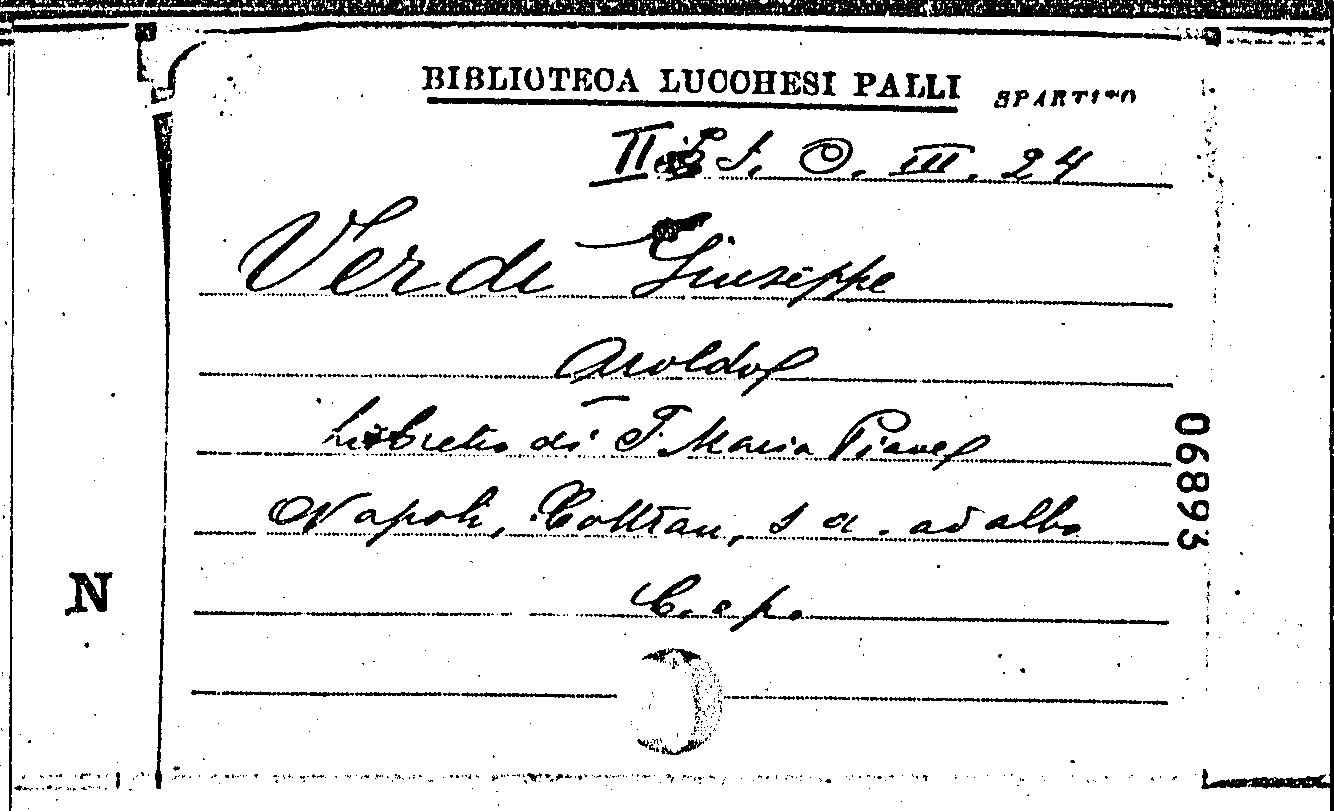 BIBLIOTECA LUCCHESI PALLI SPARTITO
II S. O. III. 24
Verdi Giuseppe
Aroldo
Libretto di F. Maria Piave
Napoli, Cottrau, s a. ad albo
C. e p.
06893
N